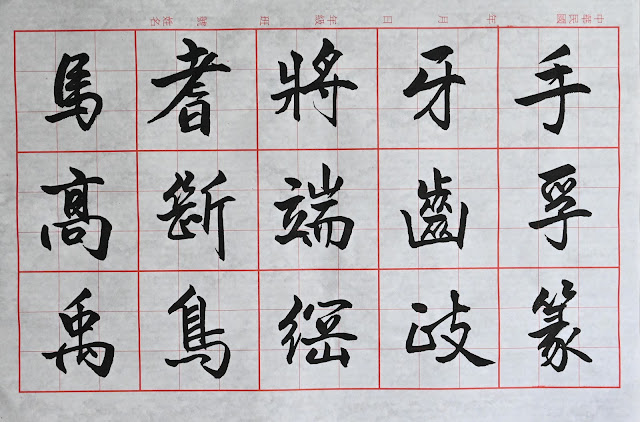 中華民國 年 月 日 年級 班 號 姓名
手孚篆
牙齒歧
將端綱
耆斷鳥
馬高禹